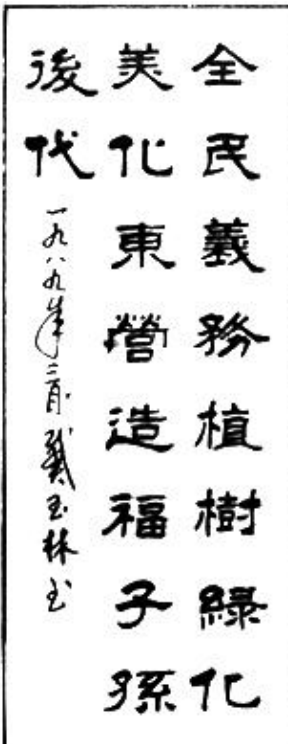 全民義務植樹綠化
美化東營造福子孫
後代
一九八九年二月戴玉林书